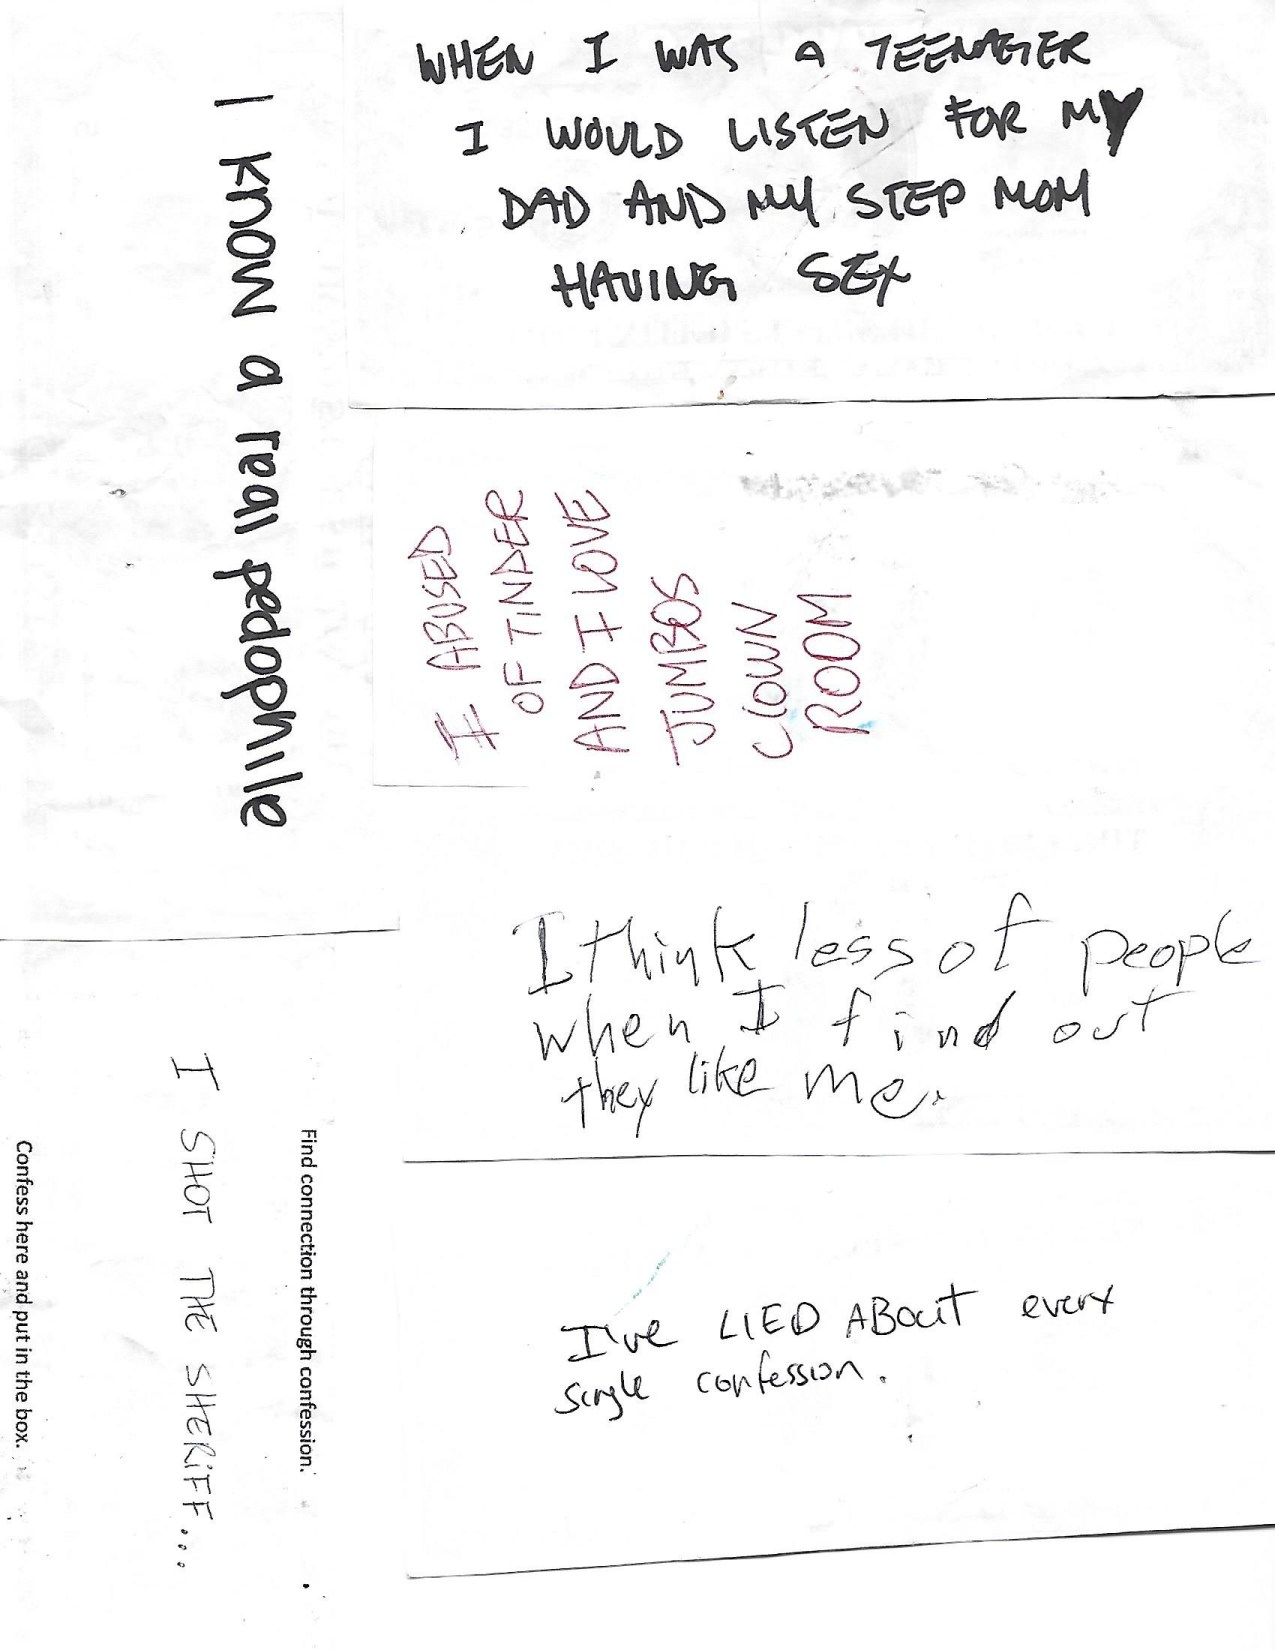 WHEN I WAS A TEENAGER
I WOULD LISTEN FOR MY
DAD AND MY STEP MOM
HAVING SEX
I know a real pedophile
I ABUSED
OF TINDER
AND I LOVE
JUMBOS
ClOWN
ROOM
I think less of people
when I find out
they like me.
Find connection through confession.
I SHOT THE SHERiFF...
Confess here and put in the box.
I've LIED ABout every
single confession.